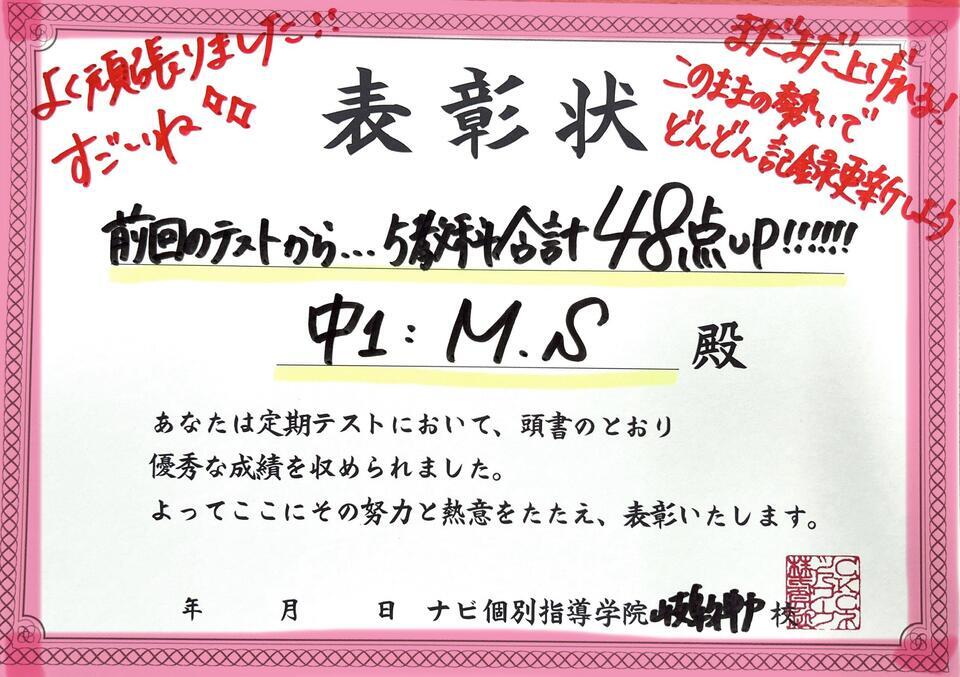 よく頑張りました!!
すごいね
まだまだ上げれる!
このままの勢いで
どんどん記録更新しよう
表彰状
前回のテストから...5教科合計48点up!!!!!!
中1:M.S 殿
あなたは定期テストにおいて、頭書のとおり
優秀な成績を収められました。
よってここにその努力と熱意をたたえ、表彰いたします。
年 月 日 ナビ個別指導学院 校